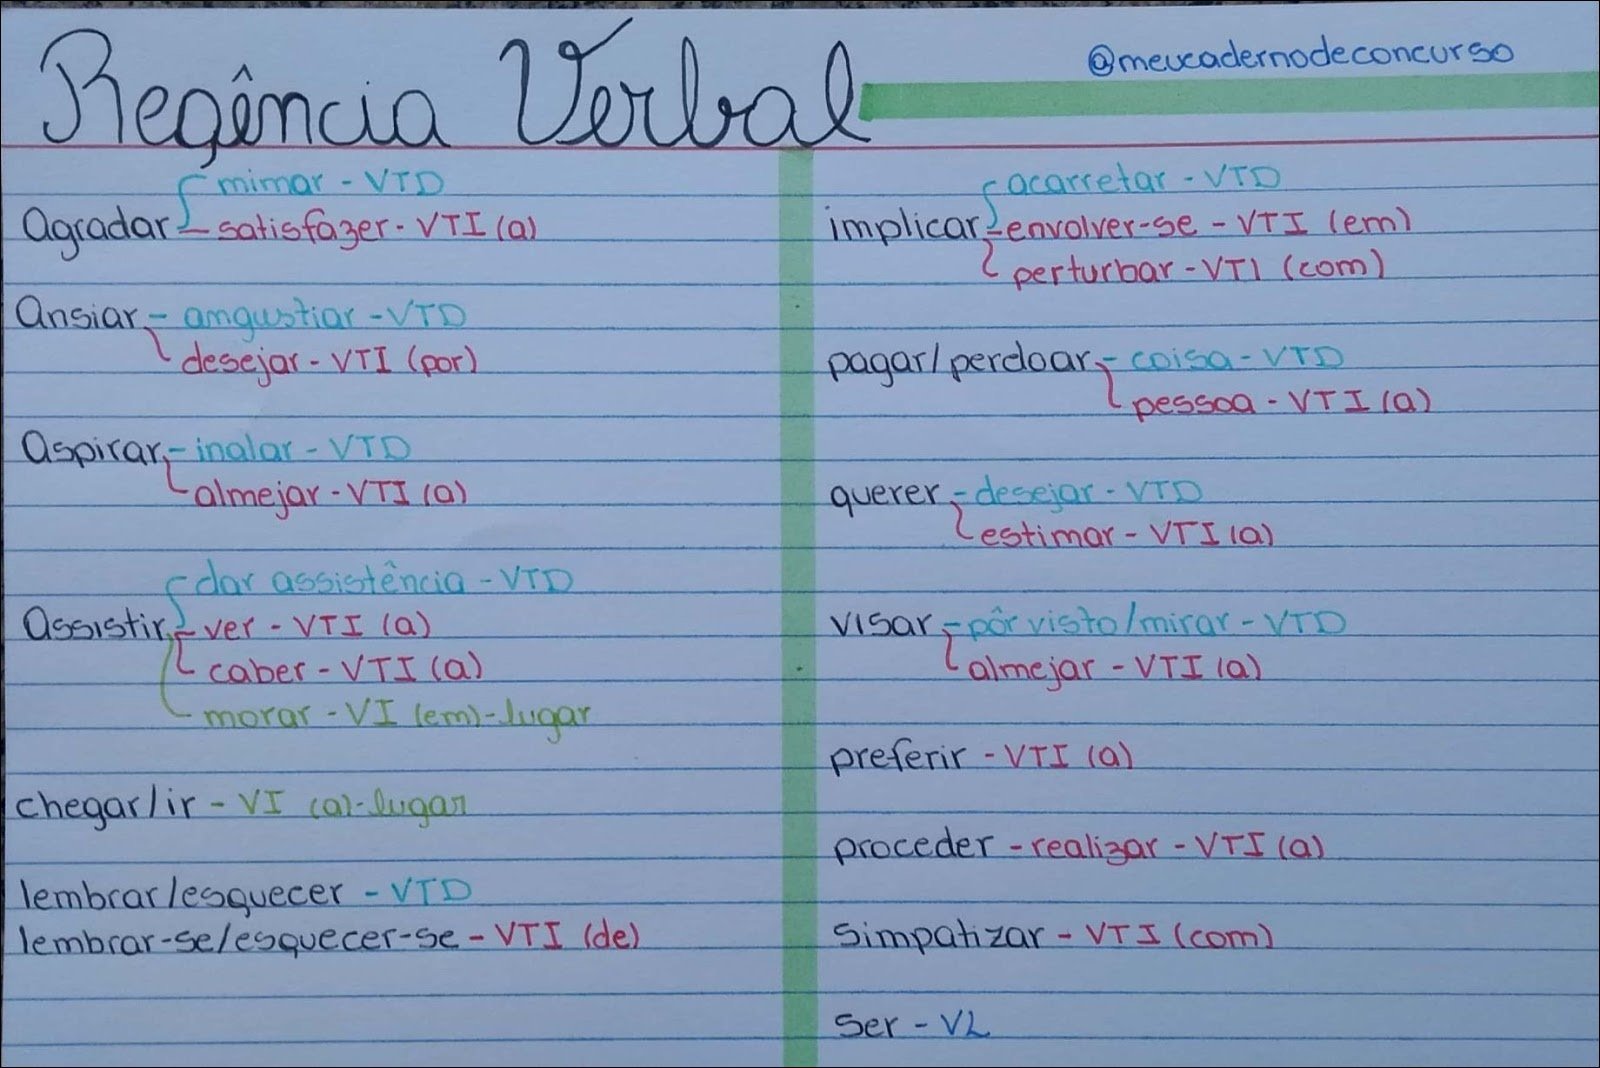 Regência Verbal
@meucadernodeconcurso
mimar - VTD
Agradar - satisfazer - VTI (a)
Ansiar - angustiar - VTD
desejar - VTI (por)
Aspirar - inalar - VTD
almejar - VTI (a)
dar assistência - VTD
Assistir - ver - VTI (a)
caber - VTI (a)
morar - VI (em) - lugar
chegar/ir - VI (a) - lugar
lembrar/esquecer - VTD
lembrar-se/esquecer-se - VTI (de)
acarretar - VTD
implicar - envolver-se - VTI (em)
perturbar - VTI (com)
pagar/perdoar - coisa - VTD
pessoa - VTI (a)
querer - desejar - VTD
estimar - VTI (a)
visar - pôr visto/mirar - VTD
almejar - VTI (a)
preferir - VTI (a)
proceder - realizar - VTI (a)
simpatizar - VTI (com)
ser - VL